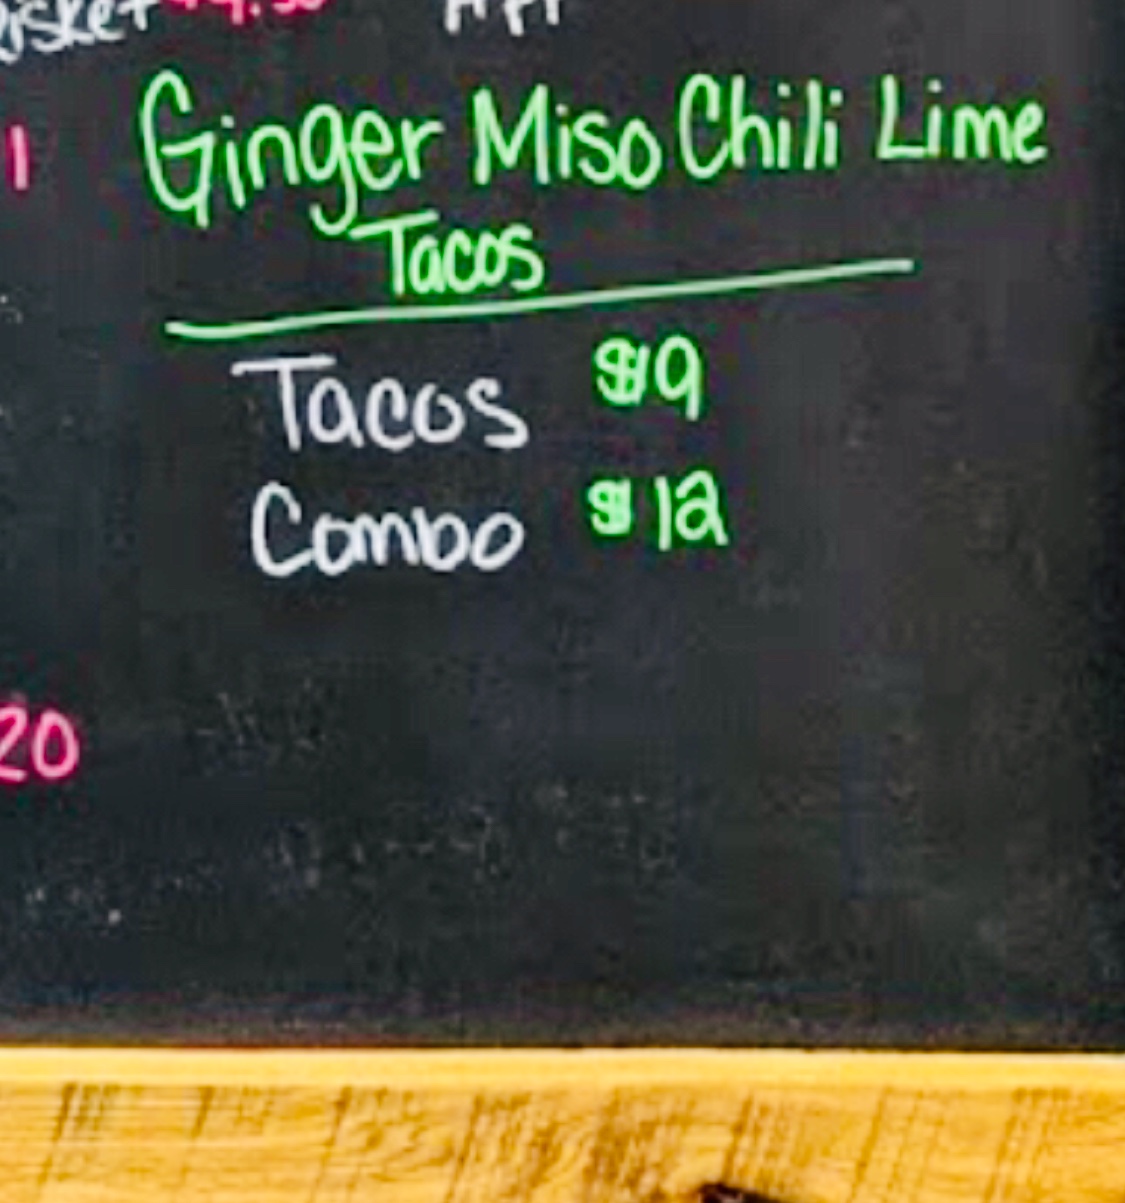 1
Ginger Miso Chili Lime
Tacos
Tacos $9
Combo $12
20